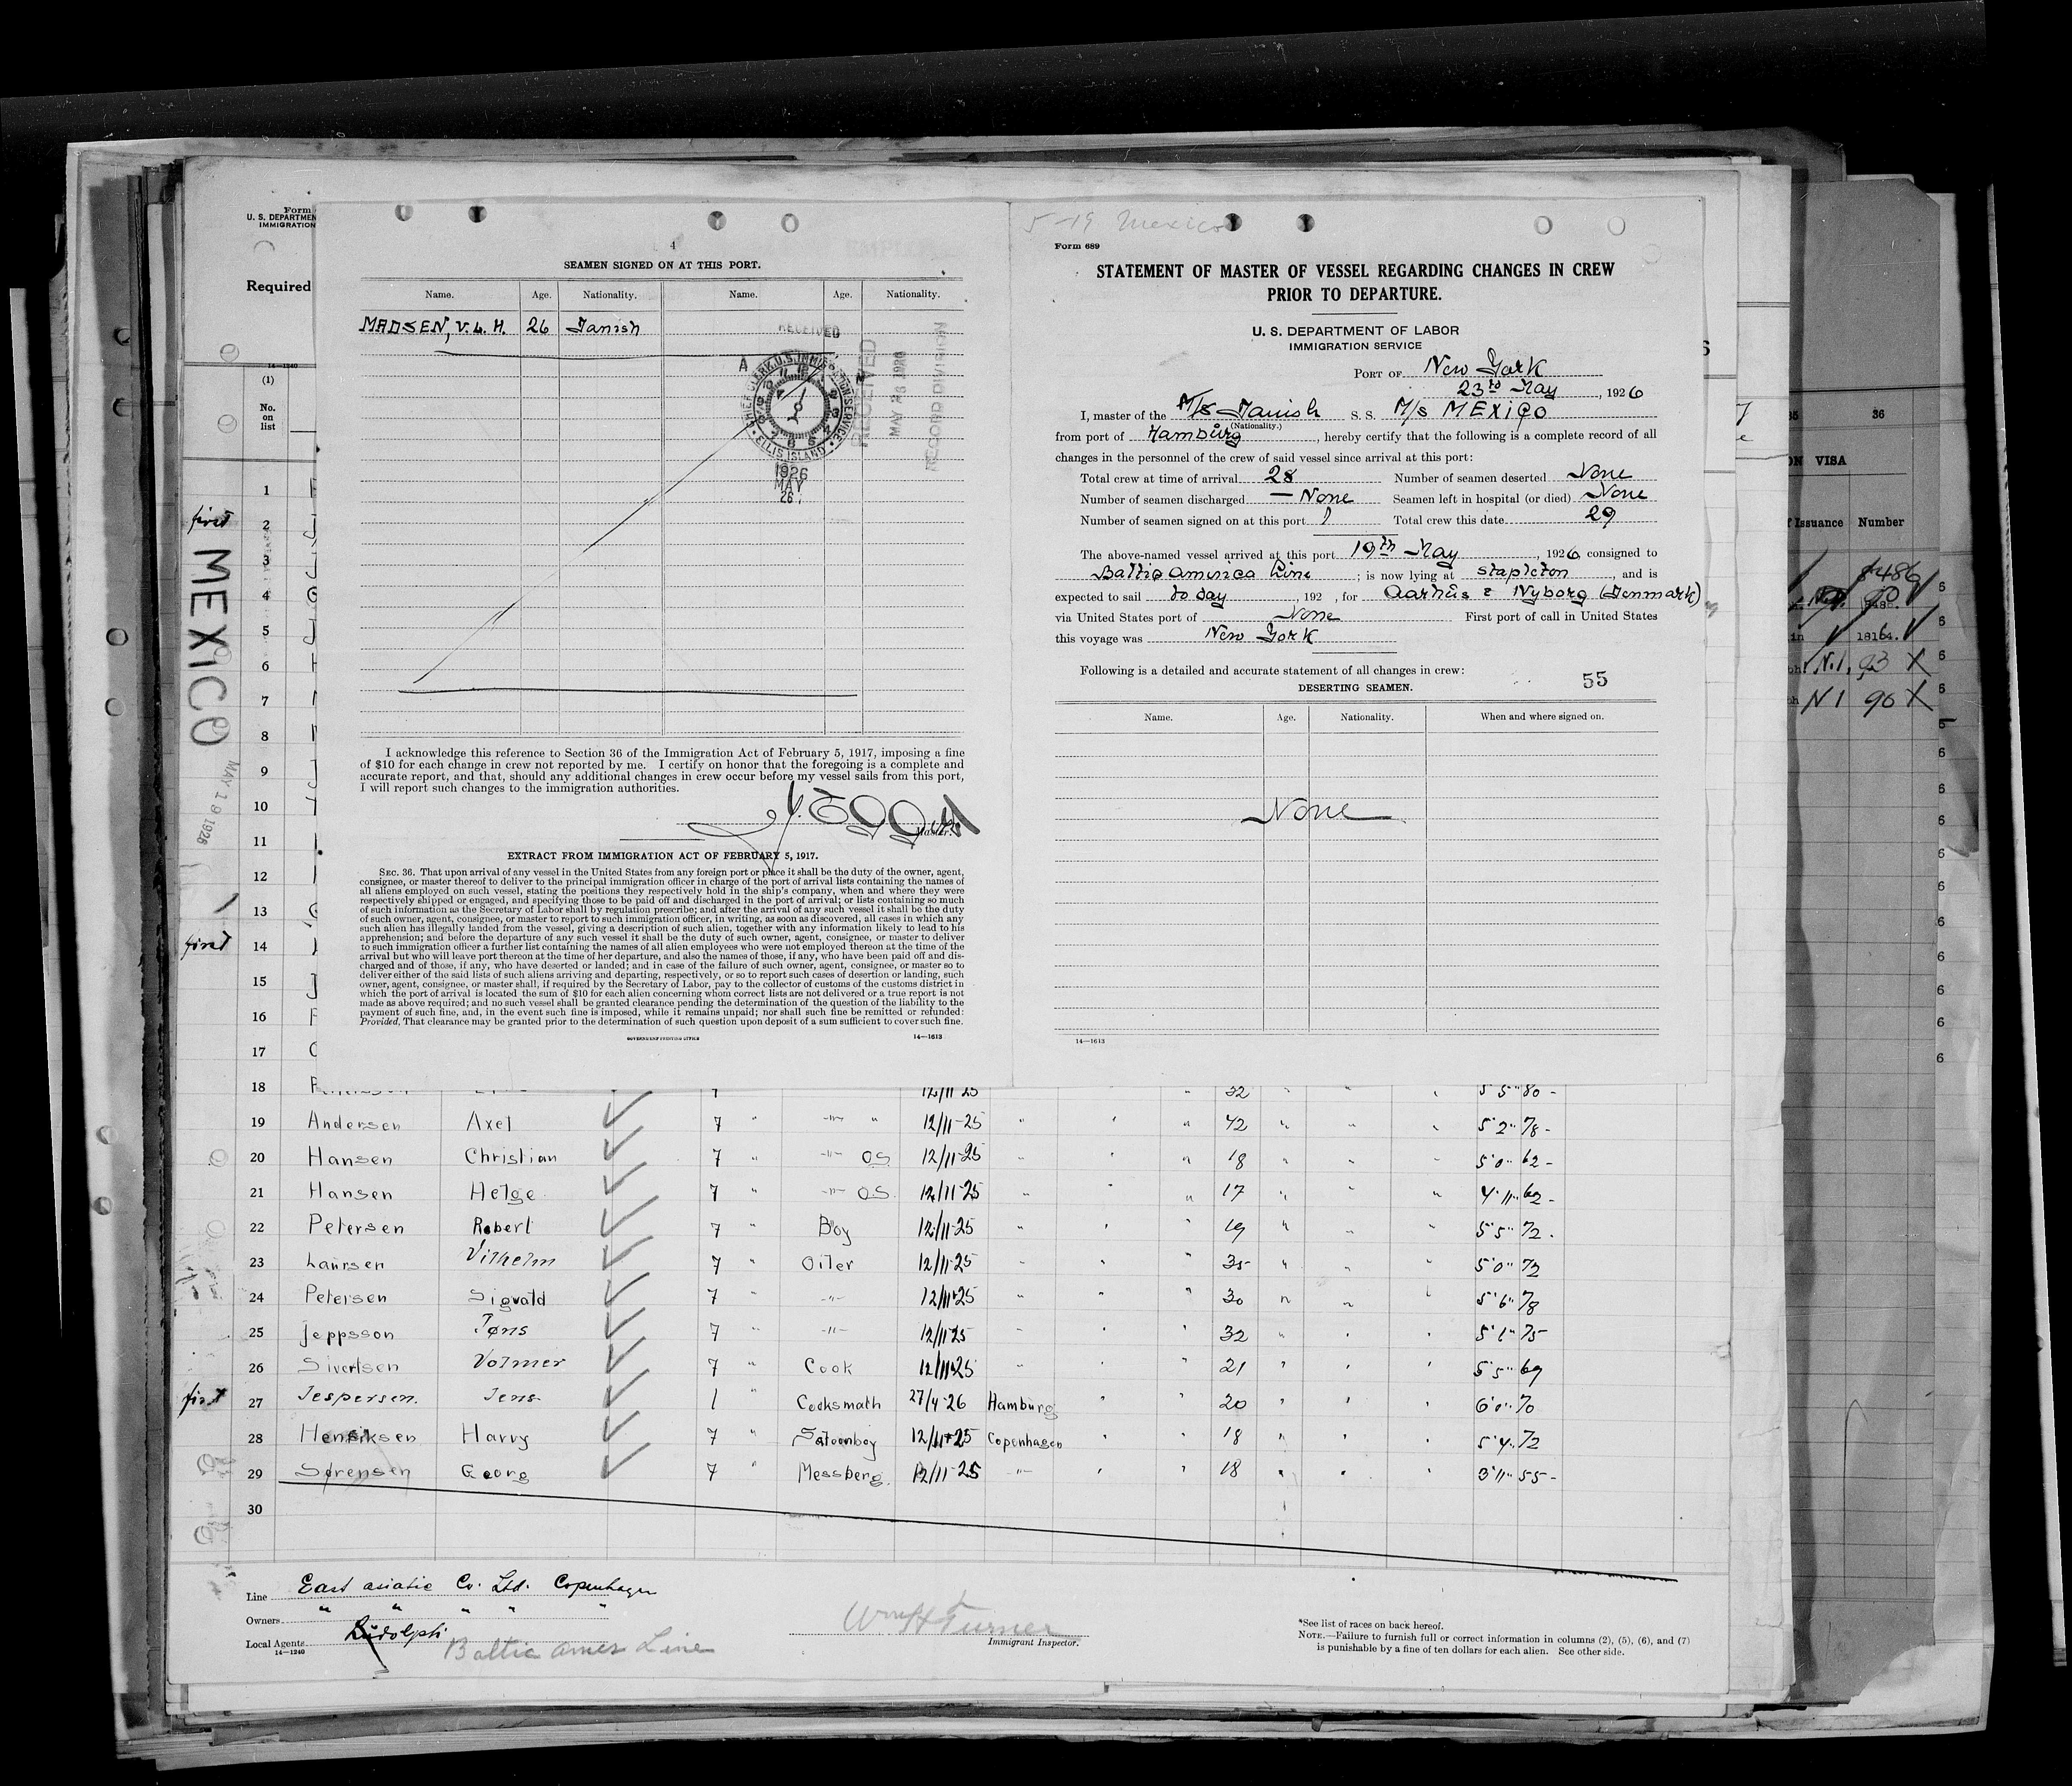 4
SEAMEN SIGNED ON AT THIS PORT.
Name. Age. Nationality. Name. Age. Nationality.
MADSEN, V. L. H. 26 Danish
RECEIVED
A M
CHIEF CLERK, U.S. IMMIGRATION SERVICE
ELLIS ISLAND
1926
MAY
26
RECEIVED
MAY 26 1926
RECORD DIVISION
I acknowledge this reference to Section 36 of the Immigration Act of February 5, 1917, imposing a fine
of $10 for each change in crew not reported by me. I certify on honor that the foregoing is a complete and
accurate report, and that, should any additional changes in crew occur before my vessel sails from this port,
I will report such changes to the immigration authorities.
Master.
EXTRACT FROM IMMIGRATION ACT OF FEBRUARY 5, 1917.
SEC. 36. That upon arrival of any vessel in the United States from any foreign port or place it shall be the duty of the owner, agent,
consignee, or master thereof to deliver to the principal immigration officer in charge of the port of arrival lists containing the names of
all aliens employed on such vessel, stating the positions they respectively hold in the ship's company, when and where they were
respectively shipped or engaged, and specifying those to be paid off and discharged in the port of arrival; or lists containing so much
of such information as the Secretary of Labor shall by regulation prescribe; and after the arrival of any such vessel it shall be the duty
of such owner, agent, consignee, or master to report to such immigration officer, in writing, as soon as discovered, all cases in which any
such alien has illegally landed from the vessel, giving a description of such alien, together with any information likely to lead to his
apprehension; and before the departure of any such vessel it shall be the duty of such owner, agent, consignee, or master to deliver
to such immigration officer a further list containing the names of all alien employees who were not employed thereon at the time of the
arrival but who will leave port thereon at the time of her departure, and also the names of those, if any, who have been paid off and dis-
charged and of those, if any, who have deserted or landed; and in case of the failure of such owner, agent, consignee, or master so to
deliver either of the said lists of such aliens arriving and departing, respectively, or so to report such cases of desertion or landing, such
owner, agent, consignee, or master shall, if required by the Secretary of Labor, pay to the collector of customs of the customs district in
which the port of arrival is located the sum of $10 for each alien concerning whom correct lists are not delivered or a true report is not
made as above required; and no such vessel shall be granted clearance pending the determination of the question of the liability to the
payment of such fine, and, in the event such fine is imposed, while it remains unpaid; nor shall such fine be remitted or refunded:
Provided, That clearance may be granted prior to the determination of such question upon deposit of a sum sufficient to cover such fine.
GOVERNMENT PRINTING OFFICE 14—1613
5-19 Mexico
Form 689
STATEMENT OF MASTER OF VESSEL REGARDING CHANGES IN CREW
PRIOR TO DEPARTURE.
U. S. DEPARTMENT OF LABOR
IMMIGRATION SERVICE
PORT OF New York
23rd May, 1926
I, master of the M/s Danish S. S. M/s MEXICO
(Nationality.)
from port of Hamburg, hereby certify that the following is a complete record of all
changes in the personnel of the crew of said vessel since arrival at this port:
Total crew at time of arrival 28 Number of seamen deserted None
Number of seamen discharged — None Seamen left in hospital (or died) None
Number of seamen signed on at this port 1 Total crew this date 29
The above-named vessel arrived at this port 19th May, 1926 consigned to
Baltic America Line; is now lying at stapleton, and is
expected to sail to day, 192 , for Aarhus & Nyborg (Denmark)
via United States port of None First port of call in United States
this voyage was New York
Following is a detailed and accurate statement of all changes in crew:
55
DESERTING SEAMEN.
Name. Age. Nationality. When and where signed on.
None
14—1613
Form
U. S. DEPARTMEN
IMMIGRATION
Required
14—1240
(1)
No.
on
list
MEXICO
MAY 19 1926
1
first 2
3
4
5
6
7
8
9
10
11
12
13
first 14
15
16
17
18 12/11 25 32 5'5" 80 -
19 Andersen Axel 7 " -"- " 12/11-25 " " " 42 " " " 5'2" 78 -
20 Hansen Christian 7 " -"- O.S. 12/11-25 " " " 18 " " " 5'0" 62 -
21 Hansen Helge 7 " -"- O.S. 12/11-25 " " " 17 " " " 4'11" 62 -
22 Petersen Robert 7 " Boy 12/11-25 " " " 19 " " " 5'5" 72 .
23 Laursen Vilhelm 7 " Oiler 12/11-25 " " " 35 " " " 5'0" 72
24 Petersen Sigvald 7 " -"- 12/11-25 " " " 30 " " " 5'6" 78
25 Jeppsson Jøns 7 " -"- 12/11-25 " " " 32 " " " 5'1" 75
26 Sivertsen Volmer 7 " Cook 12/11-25 " " " 21 " " " 5'5" 69
first 27 Jespersen. Jens 1 " Cocksmath 27/4-26 Hamburg " " 20 " " " 6'0" 70
28 Henriksen Harry 7 " Saloonboy 12/11-25 Copenhagen " " 18 " " " 5'4" 72
29 Sørensen Georg 7 " Messberg. 12/11-25 -"- " " 18 " " " 3'11" 55 -
30
Line East asiatic Co. Ltd. Copenhagen
Owners " " " " "
Local Agents Rudolph Baltic Amer Line
14—1240
Wm H Turner
Immigrant Inspector.
*See list of races on back hereof.
NOTE.—Failure to furnish full or correct information in columns (2), (5), (6), and (7)
is punishable by a fine of ten dollars for each alien. See other side.
36
VISA
Issuance Number
8486
1816
N.I. 93 X
N I 90 X